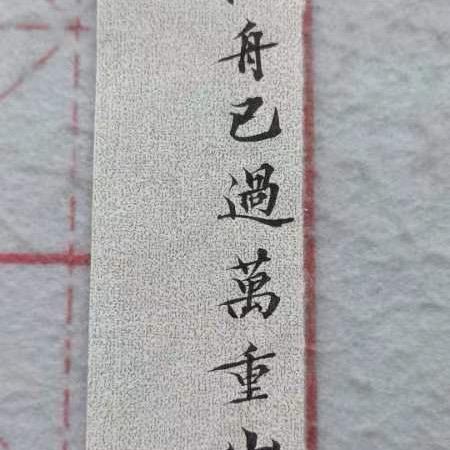 舟已過萬重山